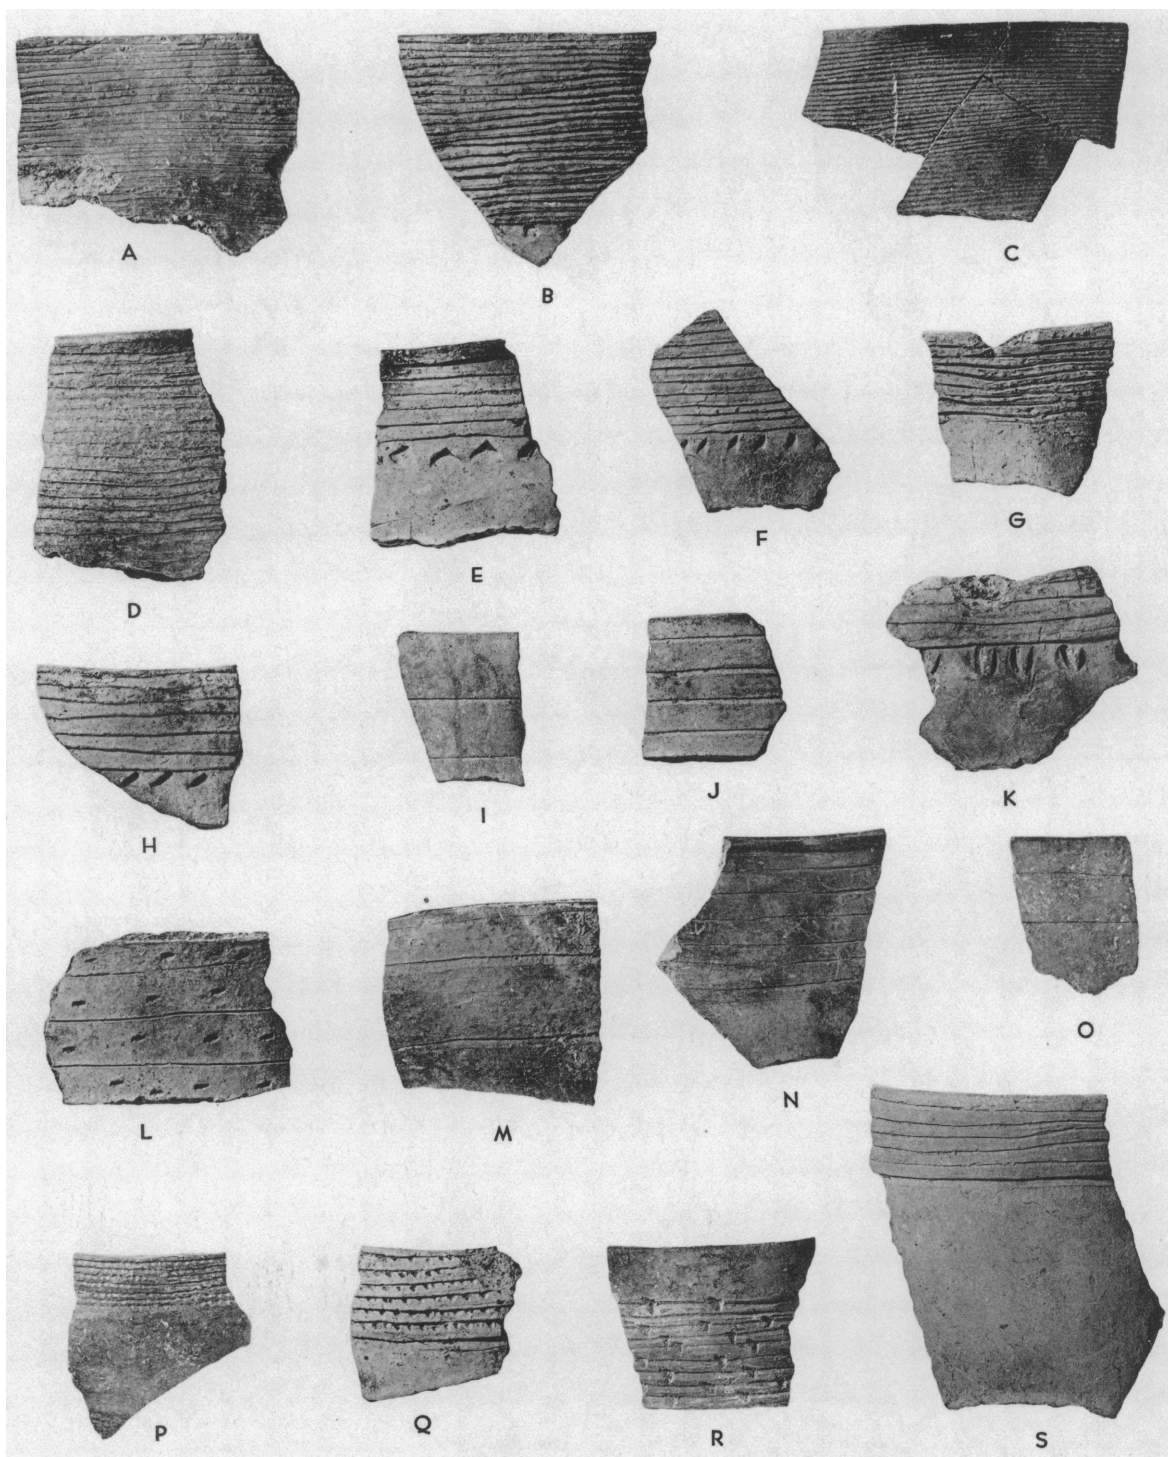 A
B
C
D
E
F
G
H
I
J
K
L
M
N
O
P
Q
R
S